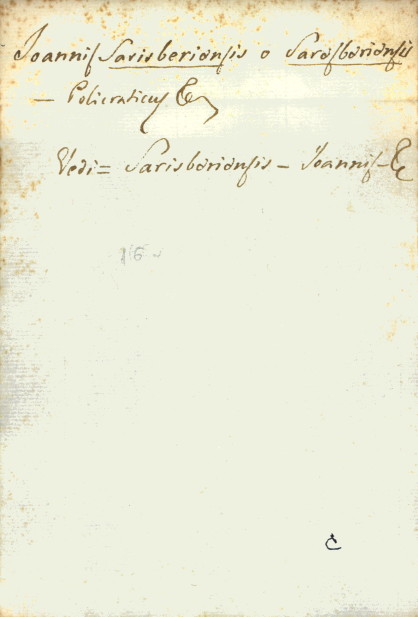 Joannis Sarisberiensis o Saresberiensis
— Policraticus &c
Vedi = Sarisberiensis — Joannis — &c